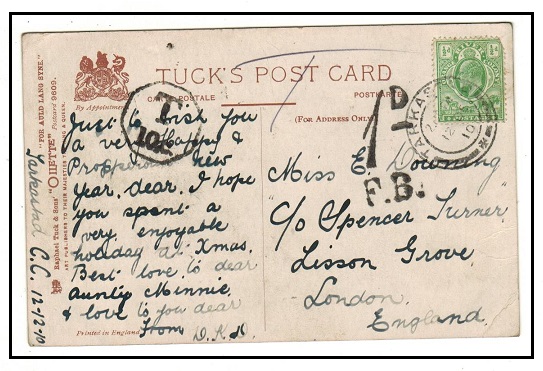 TUCK'S POST CARD
CARTE POSTALE
POSTKARTE
By Appointment
(FOR ADDRESS ONLY)
"FOR AULD LANG SYNE."
Raphael Tuck & Sons' "OILETTE" Postcard 9609.
ART PUBLISHERS TO THEIR MAJESTIES THE KING & QUEEN.
Tarkastad C.C. 12-12-10
T
10c
Just to wish you
a very happy &
Prosperous new
Year, dear. I hope
you spent a
very enjoyable
holiday at Xmas.
Best love to dear
Aunty Minnie,
& love to you dear
from D.K.D.
Printed in England
1D
F.B.
TARKASTAD
12
10
½d
½d
POSTAGE
Miss E. Downing
c/o Spencer Turner
Lisson Grove
London.
England.